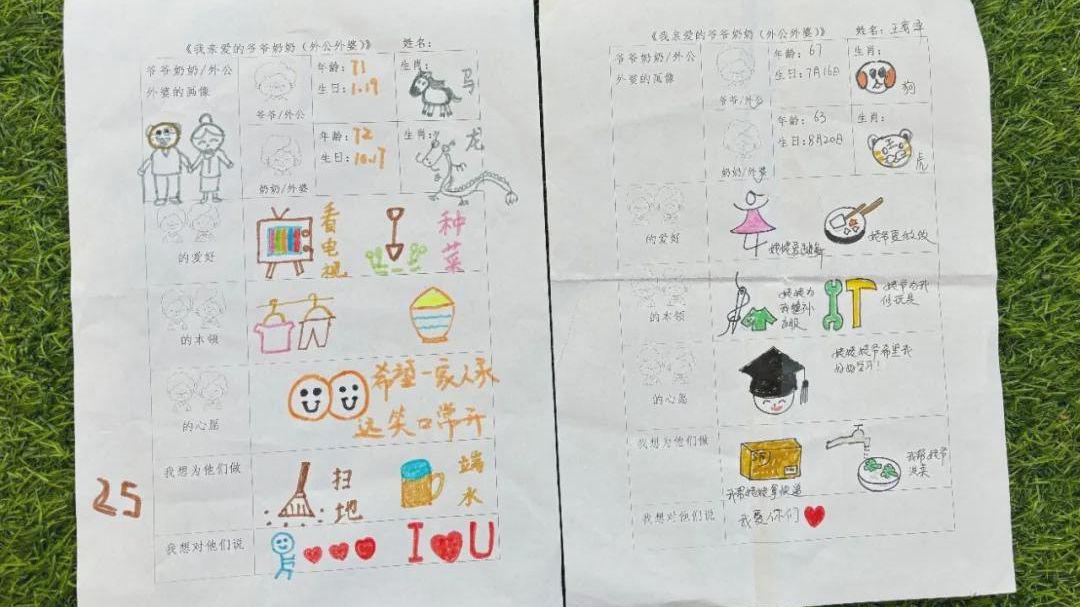 《我亲爱的爷爷奶奶（外公外婆）》 姓名：
爷爷奶奶/外公
外婆的画像
爷爷/外公
年龄：71
生日：1.19
生肖：
马
奶奶/外婆
年龄：72
生日：10.17
生肖：
龙
的爱好
看电视
种菜
的本领
的心愿
希望一家人永
远笑口常开
我想为他们做
扫地
端水
25
我想对他们说
I U
《我亲爱的爷爷奶奶（外公外婆）》 姓名：王
爷爷奶奶/外公
外婆的画像
爷爷/外公
年龄：67
生日：7月16日
生肖：
狗
奶奶/外婆
年龄：63
生日：8月20日
生肖：
虎
的爱好
姥姥爱跳舞
姥爷爱做饭
的本领
姥姥为
我缝补
衣服
姥爷为我
修玩具
的心愿
姥姥姥爷希望我
好好学习！
我想为他们做
我帮姥姥拿快递
我帮姥爷
洗菜
我想对他们说
我爱你们